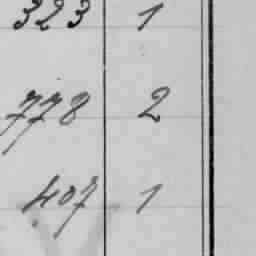 323 1
778 2
407 1